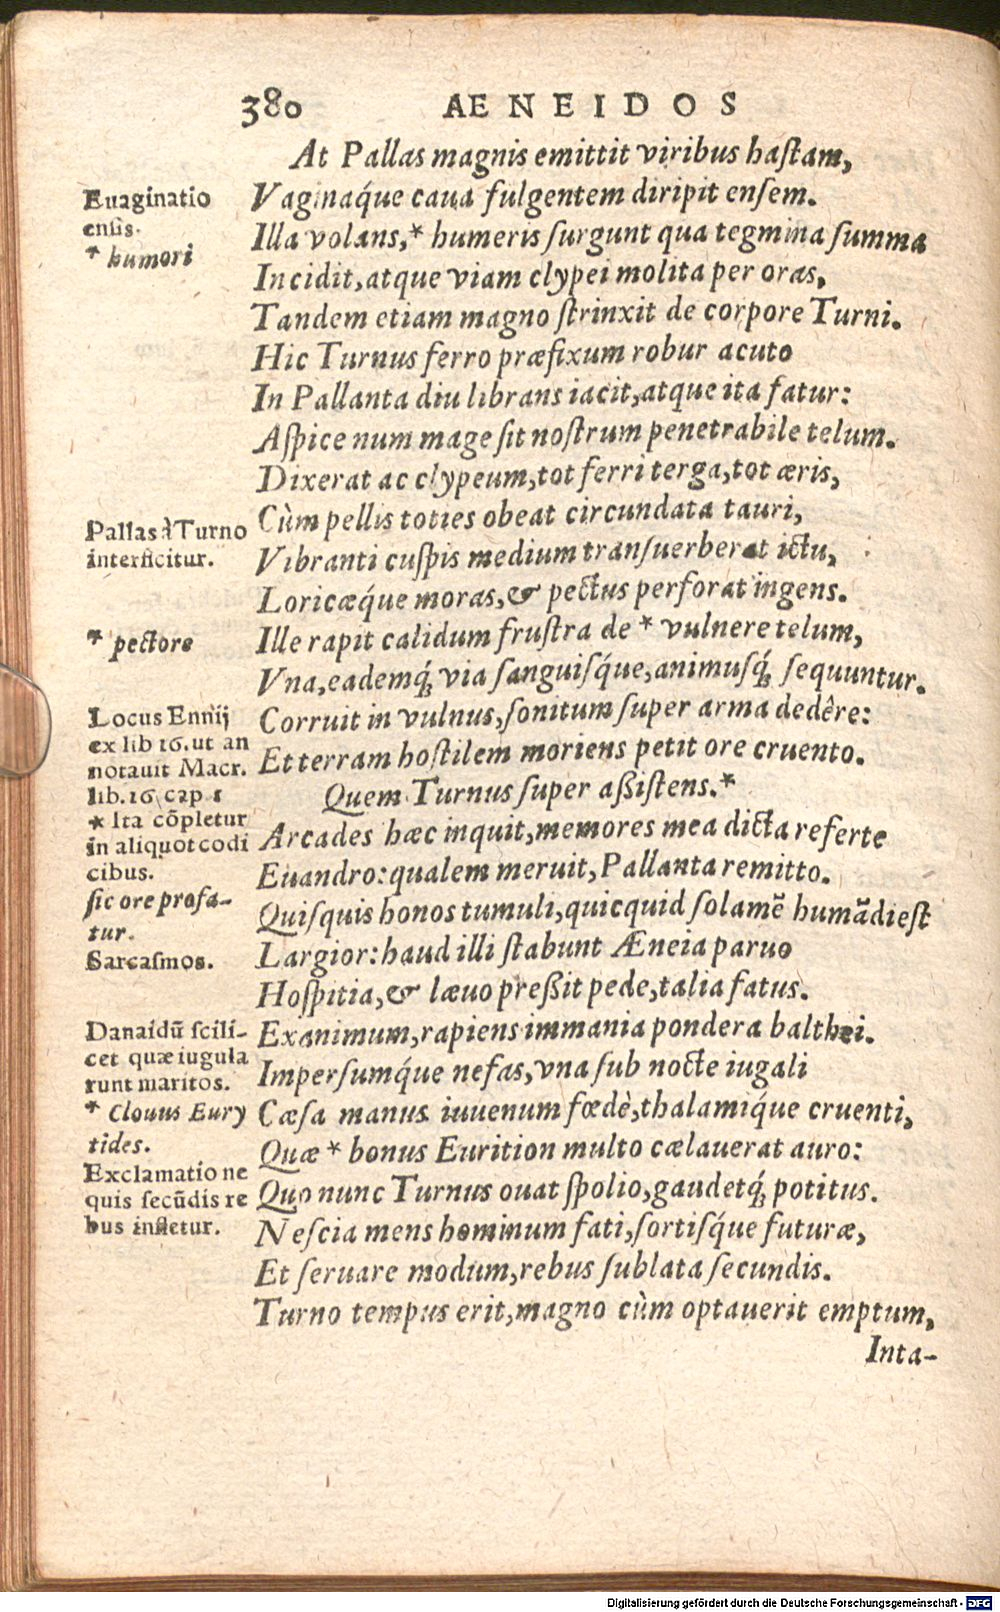 380 AENEIDOS
At Pallas magnis emittit viribus haſtam,
Vaginaq́ue caua fulgentem diripit enſem.
Illa volans,* humeris ſurgunt qua tegmina ſumma
Incidit, atque viam clypei molita per oras,
Tandem etiam magno ſtrinxit de corpore Turni.
Hic Turnus ferro præfixum robur acuto
In Pallanta diu librans iacit, atque ita fatur:
Aſpice num mage ſit noſtrum penetrabile telum.
Dixerat ac clypeum, tot ferri terga, tot æris,
Cùm pellis toties obeat circundata tauri,
Vibranti cuſpis medium tranſuerberat ictu,
Loricæq́ue moras, & pectus perforat ingens.
Ille rapit calidum fruſtra de * vulnere telum,
Vna, eademq́ꝫ via ſanguiſq́ue, animuſq́ꝫ ſequuntur.
Corruit in vulnus, ſonitum ſuper arma dedêre:
Et terram hoſtilem moriens petit ore cruento.
Quem Turnus ſuper aßiſtens.*
Arcades hæc inquit, memores mea dicta referte
Euandro: qualem meruit, Pallanta remitto.
Quiſquis honos tumuli, quicquid ſolamē humādi eſt
Largior: haud illi ſtabunt Æneia paruo
Hoſpitia, & læuo preßit pede, talia fatus.
Exanimum, rapiens immania pondera balthei.
Imperſumq́ue nefas, vna ſub nocte iugali
Cæſa manus iuuenum fœdè, thalamiq́ue cruenti,
Quæ * bonus Eurition multo cælauerat auro:
Quo nunc Turnus ouat ſpolio, gaudetq́ꝫ potitus.
Neſcia mens hominum fati, ſortiſq́ue futuræ,
Et ſeruare modum, rebus ſublata ſecundis.
Turno tempus erit, magno cùm optauerit emptum,
Inta-
Euaginatio
enſis.
* humori
Pallas à Turno
interficitur.
* pectore
Locus Ennij
ex lib 16. ut an
notauit Macr.
lib. 16 cap 1
* Ita cōpletur
in aliquot codi
cibus.
ſic ore profa-
tur.
Sarcaſmos.
Danaidū ſcili-
cet quæ iugula
runt maritos.
* Clouus Eury
tides.
Exclamatio ne
quis ſecūdis re
bus infletur.
Digitalisierung gefördert durch die Deutsche Forschungsgemeinschaft - DFG